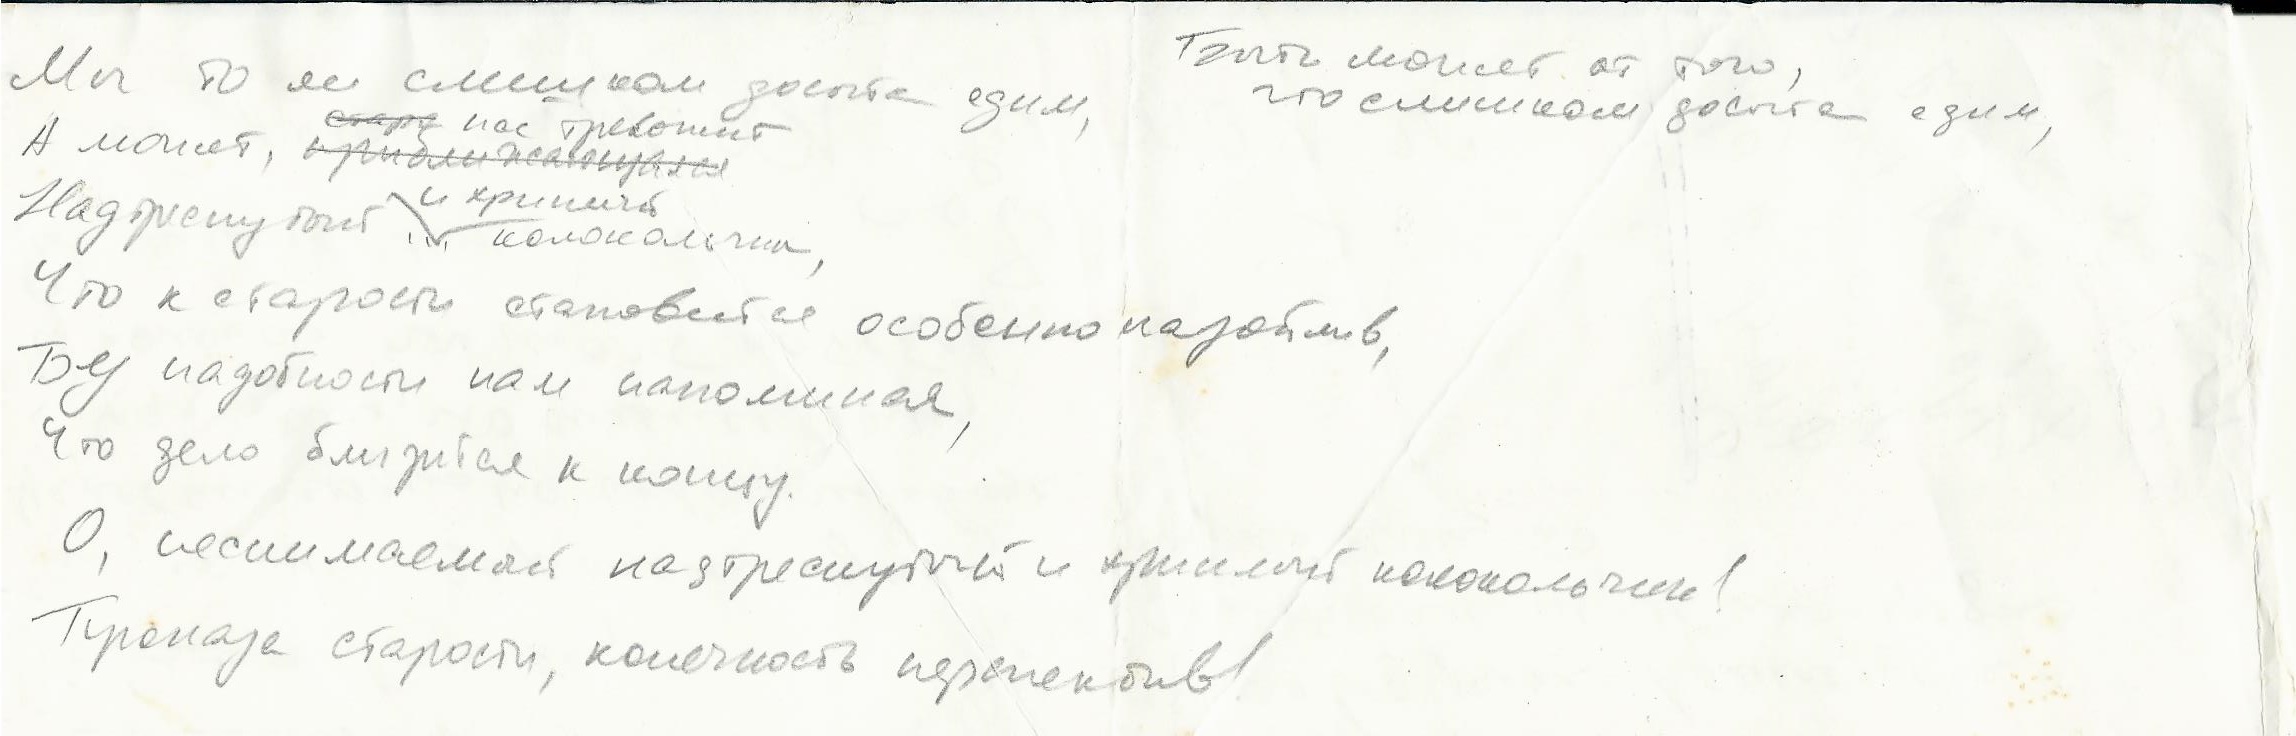 Мы то ли слишком досыта едим,
Быть может от того,
что слишком досыта едим,
стару нас тревожит
А может, приближающаяся
и хриплый
Надтреснутый ... колокольчик,
Что к старости становится особенно назойлив,
Без надобности нам напоминая,
Что дело близится к концу.
О, неснимаемый надтреснутый и хриплый колокольчик!
Проказа старости, конечность перспектив!